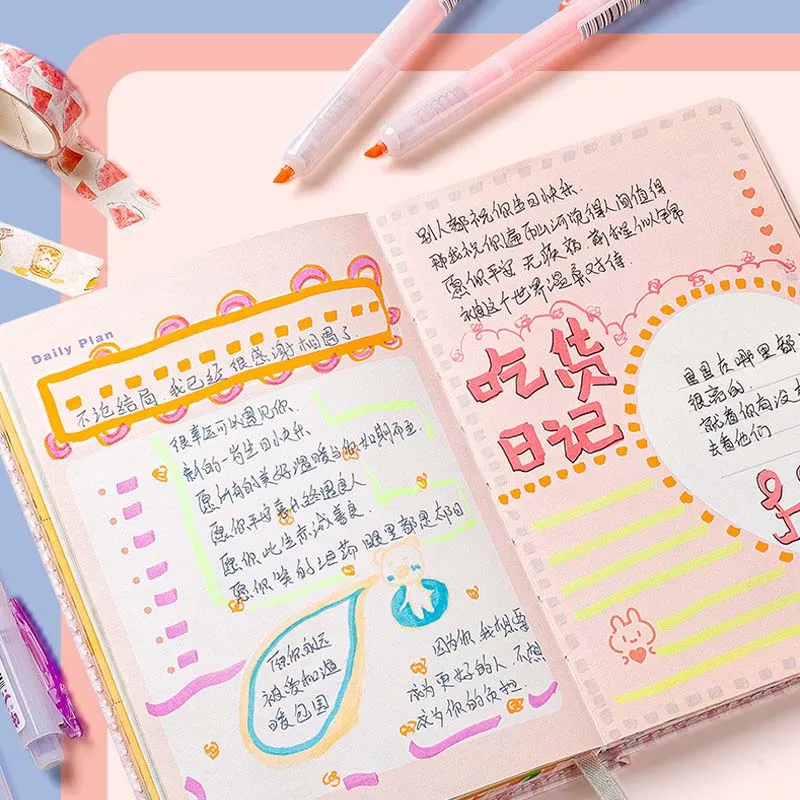 Daily Plan
不论结局,我已经很感谢相遇了.
很幸运可以遇见你.
新的一岁生日快乐
愿所有的美好温暖与你如期而至
愿你平安喜乐终遇良人
愿你此生赤诚善良.
愿你笑的坦荡 眼里都是太阳
愿你永远
被爱和温
暖包围
因为你,我想要
成为更好的人,不想
成为你的负担.
别人都祝你生日快乐.
那我祝你遍历山河觉得人间值得
愿你平安 无疾病 前程似锦
被这个世界温柔对待
吃货
日记
星星在哪里都
很亮的.
就看你有没
去看他们